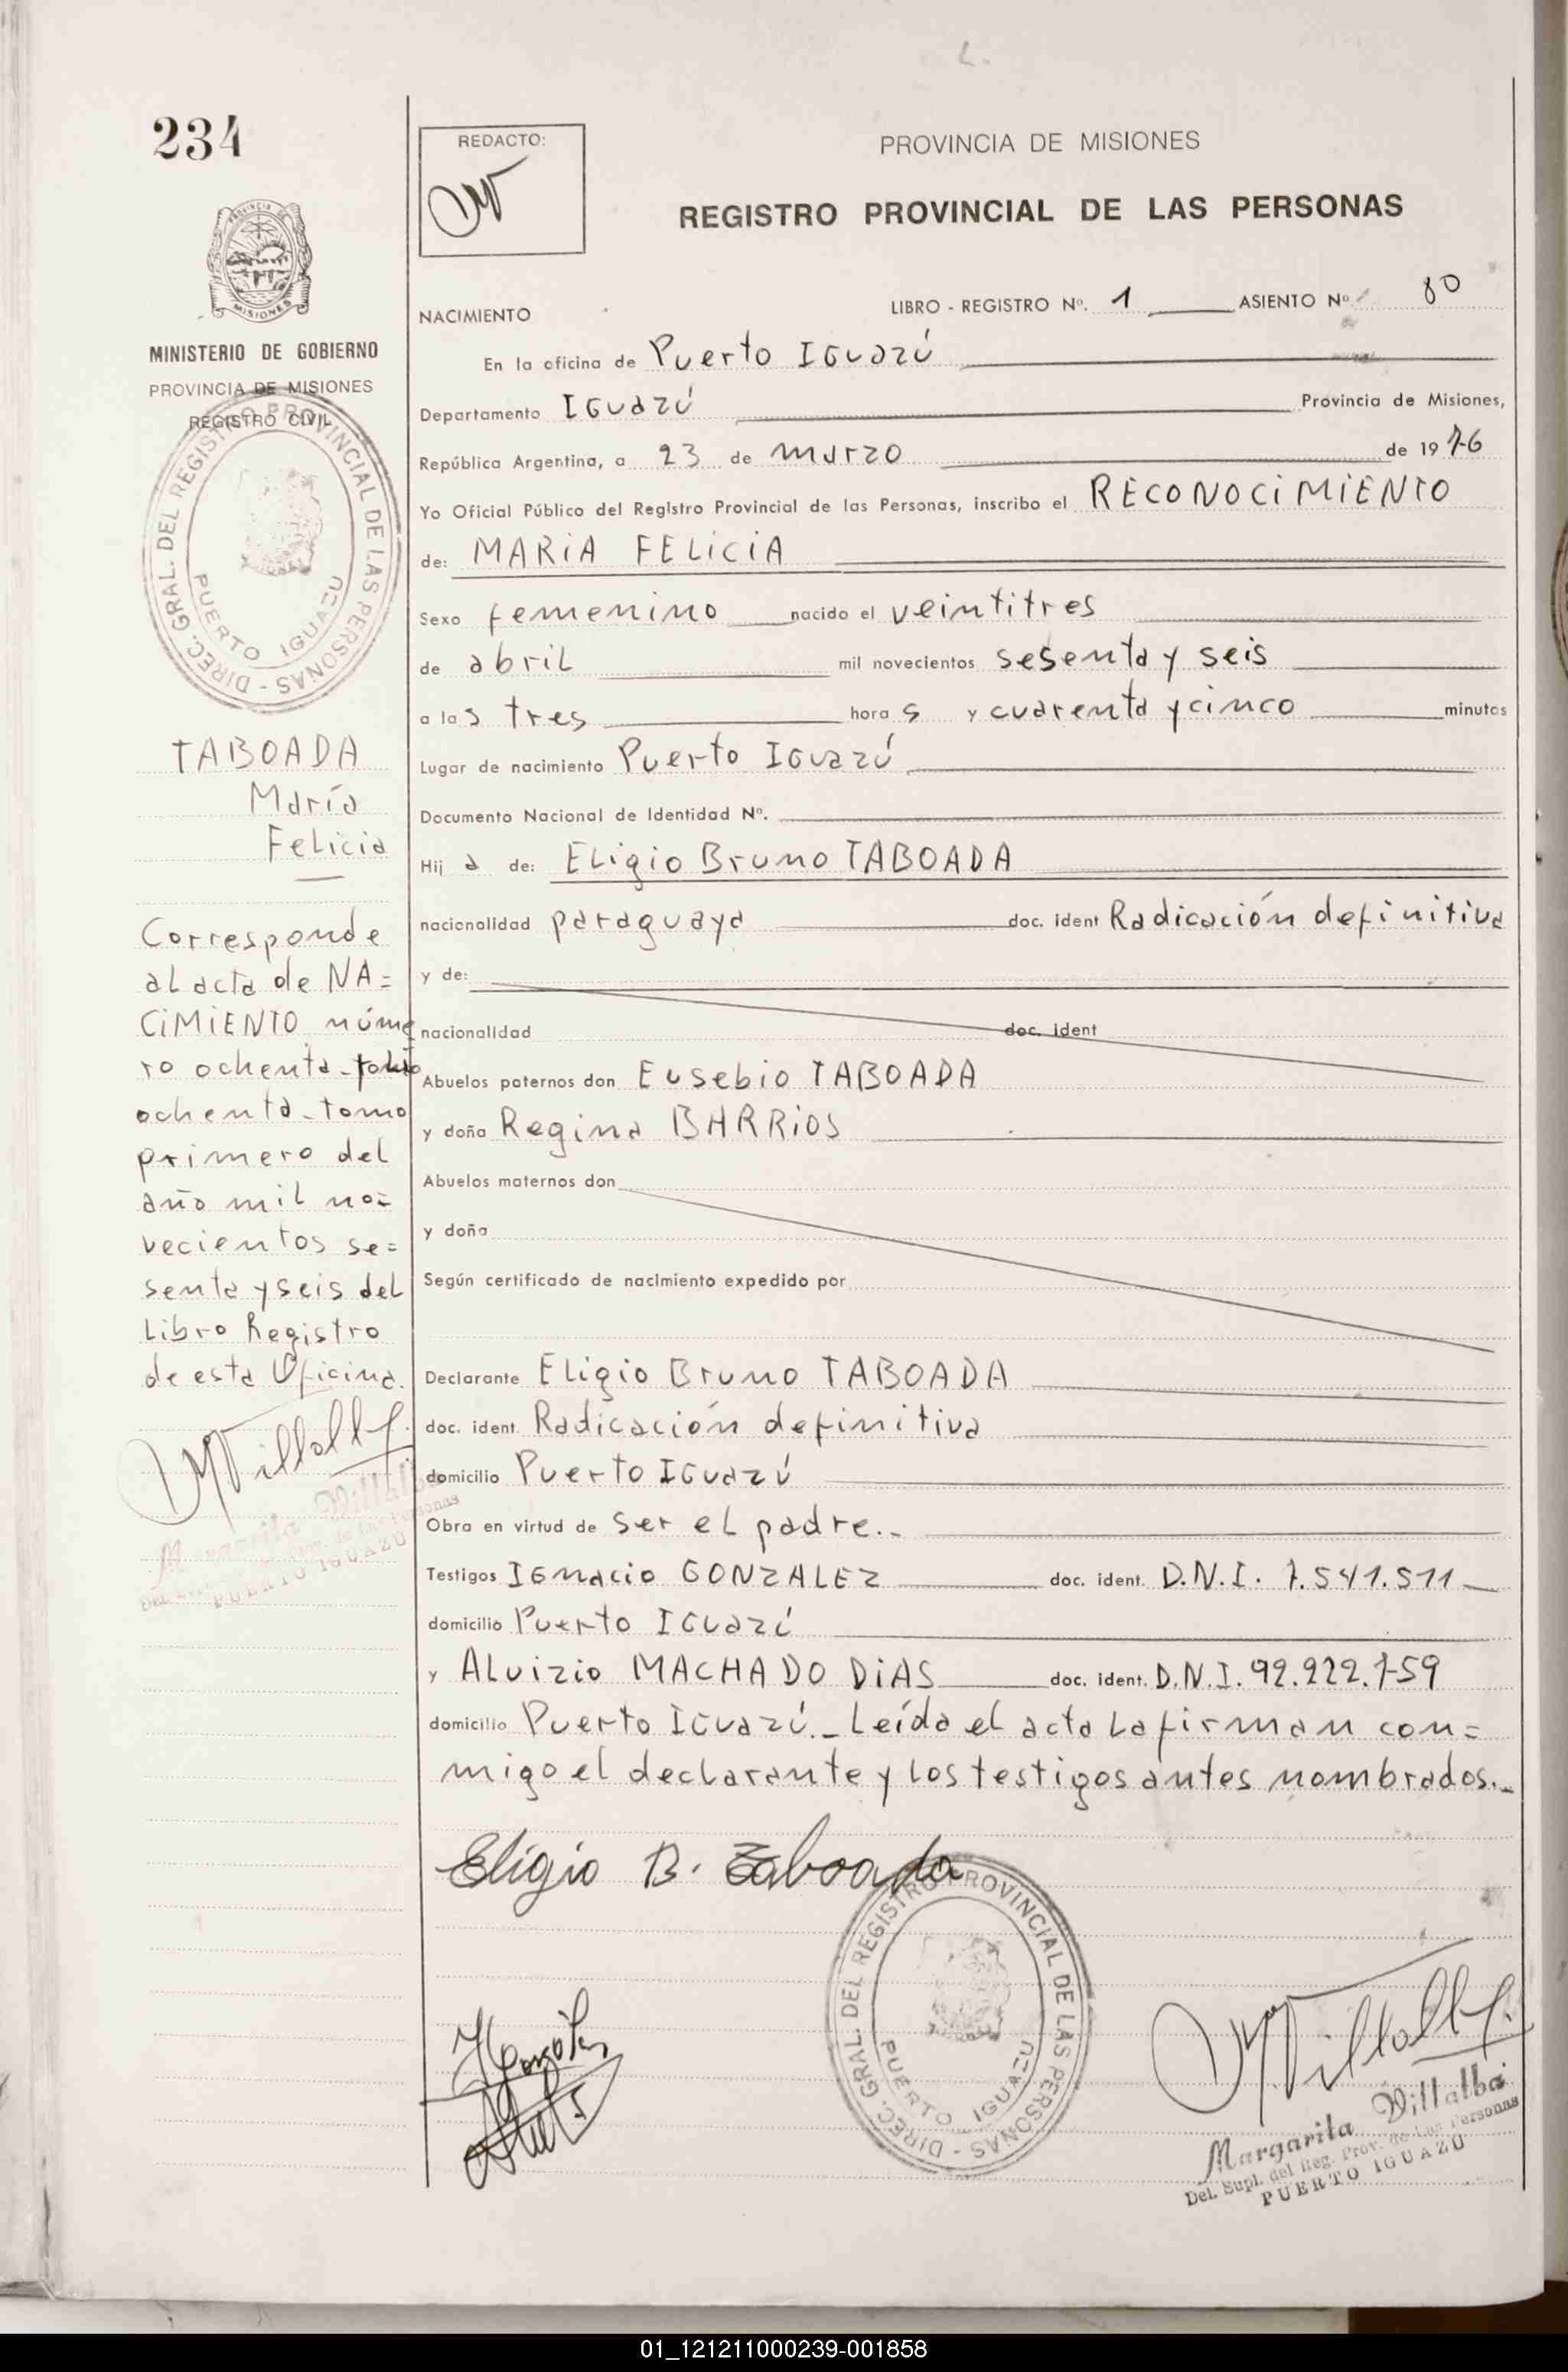 234
REDACTO:
PROVINCIA DE MISIONES
REGISTRO PROVINCIAL DE LAS PERSONAS
MISIONES
MINISTERIO DE GOBIERNO
PROVINCIA DE MISIONES
REGISTRO CIVIL
DIREC. GRAL. DEL REGISTRO PROVINCIAL DE LAS PERSONAS -
PUERTO IGUAZU
TABOADA
María
Felicia
Corresponde
al acta de NA=
CIMIENTO núme
ro ochenta-folio
ochenta-tomo
primero del
año mil no=
vecientos se=
senta y seis del
Libro Registro
de esta Oficina.
MVillalba
Margarita Villalba
PUERTO IGUAZU
NACIMIENTO LIBRO - REGISTRO Nº. 1 ASIENTO Nº 80
En la oficina de Puerto Iguazú
Departamento Iguazú Provincia de Misiones,
República Argentina, a 23 de marzo de 1976
Yo Oficial Público del Registro Provincial de las Personas, inscribo el RECONOCIMIENTO
de: MARIA FELICIA
Sexo femenino nacido el veintitres
de abril mil novecientos sesenta y seis
a las tres horas y cuarenta y cinco minutos
Lugar de nacimiento Puerto Iguazú
Documento Nacional de Identidad Nº.
Hija de: Eligio Bruno TABOADA
nacionalidad paraguaya doc. ident Radicación definitiva
y de:
nacionalidad doc. ident
Abuelos paternos don Eusebio TABOADA
y doña Regina BARRIOS
Abuelos maternos don
y doña
Según certificado de nacimiento expedido por
Declarante Eligio Bruno TABOADA
doc. ident. Radicación definitiva
domicilio Puerto Iguazú
Obra en virtud de ser el padre.-
Testigos Ignacio GONZALEZ doc. ident. D.N.I. 7.541.511
domicilio Puerto Iguazú
y Aluizio MACHADO DIAS doc. ident. D.N.I. 92.922.759
domicilio Puerto Iguazú.- Leída el acta la firman con=
migo el declarante y los testigos antes nombrados.-
Eligio B. Taboada
DIREC. GRAL. DEL REGISTRO PROVINCIAL DE LAS PERSONAS -
PUERTO IGUAZU
MVillalba
Margarita Villalba
Del. Supl. del Reg. Prov. de Las Personas
PUERTO IGUAZU
01_121211000239-001858